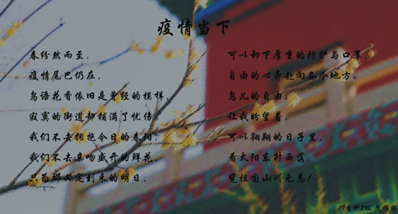 疫情当下
春纷然而至，
疫情尾巴仍在，
鸟语花香依旧是曾经的模样
寂寞的街道却铺满了忧伤，
我们不去拥抱今日的春阳，
我们不去亲吻盛开的鲜花，
只为那必定到来的明日，
可以卸下厚重的防护与口罩
自由的心奔赴向各个地方。
鸟儿的自由，
让我盼望着，
可以翱翔的日子里，
看太阳东升西落，
览祖国山川无恙！